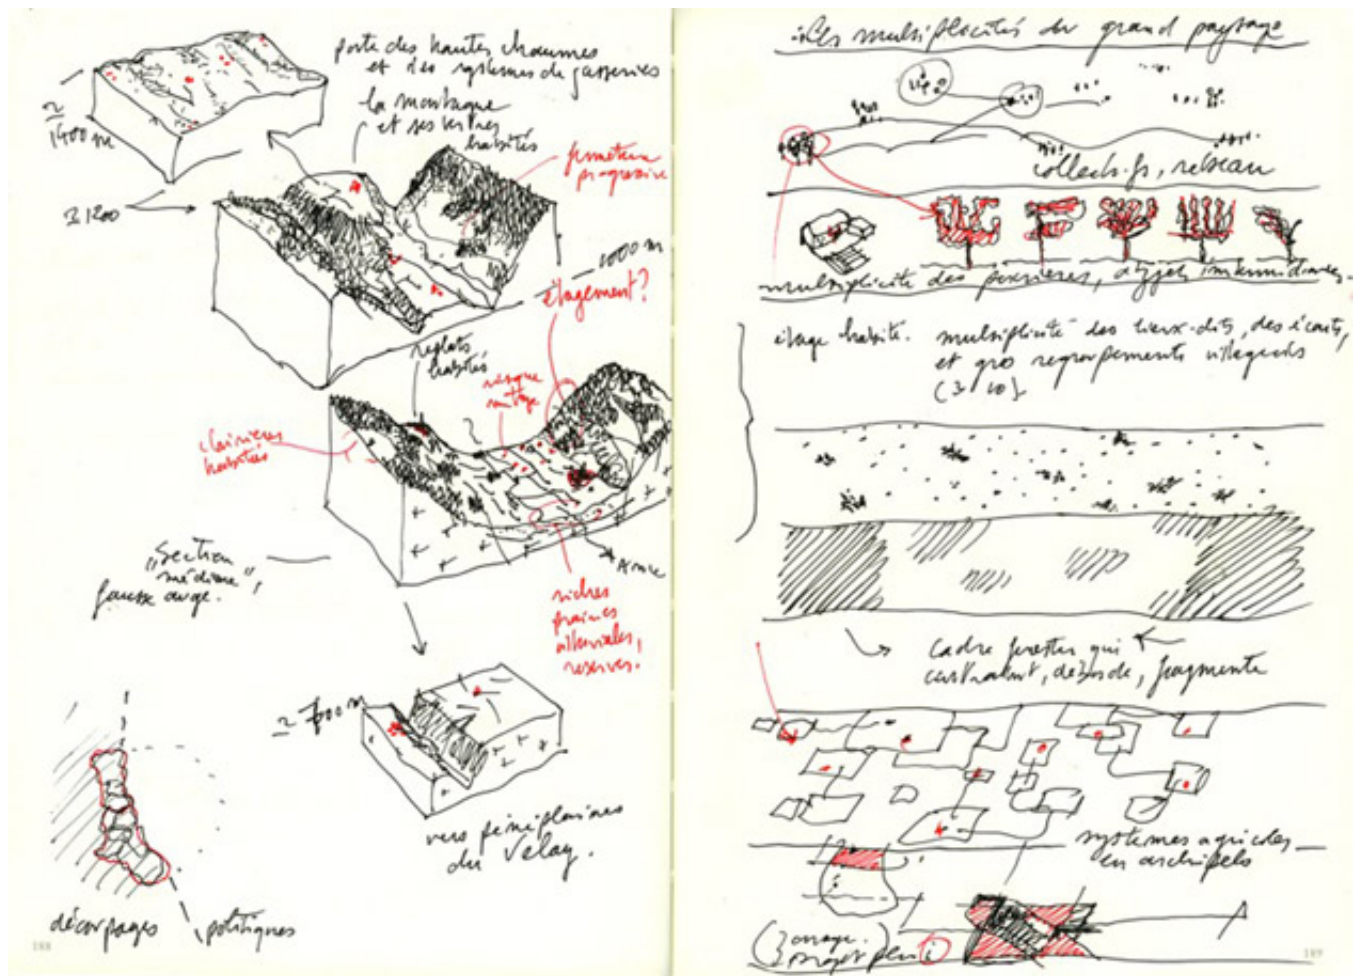 porte des hautes chaumes
et des systèmes de jasseries
la montagne
et ses
habités
≃
1400 m
≃ 1200
fermeture
progressive
1000 m
étagement?
replats
habités
risque
mitage
?
clairières
habitées
"Section
médiane",
fausse auge.
riches
prairies
alluviales,
réserves.
≃ 700 m
vers pénéplaines
du Velay.
découpages politiques
188
Les multiplicités du grand paysage
collectifs, réseau
multiplicité des objets intermédiaires
étage habité. multiplicité des lieux-dits, des écarts,
et gros regroupements villageois
(3 10)
cadre forestier qui
déborde, fragmente
systèmes agricoles
en archipels
189